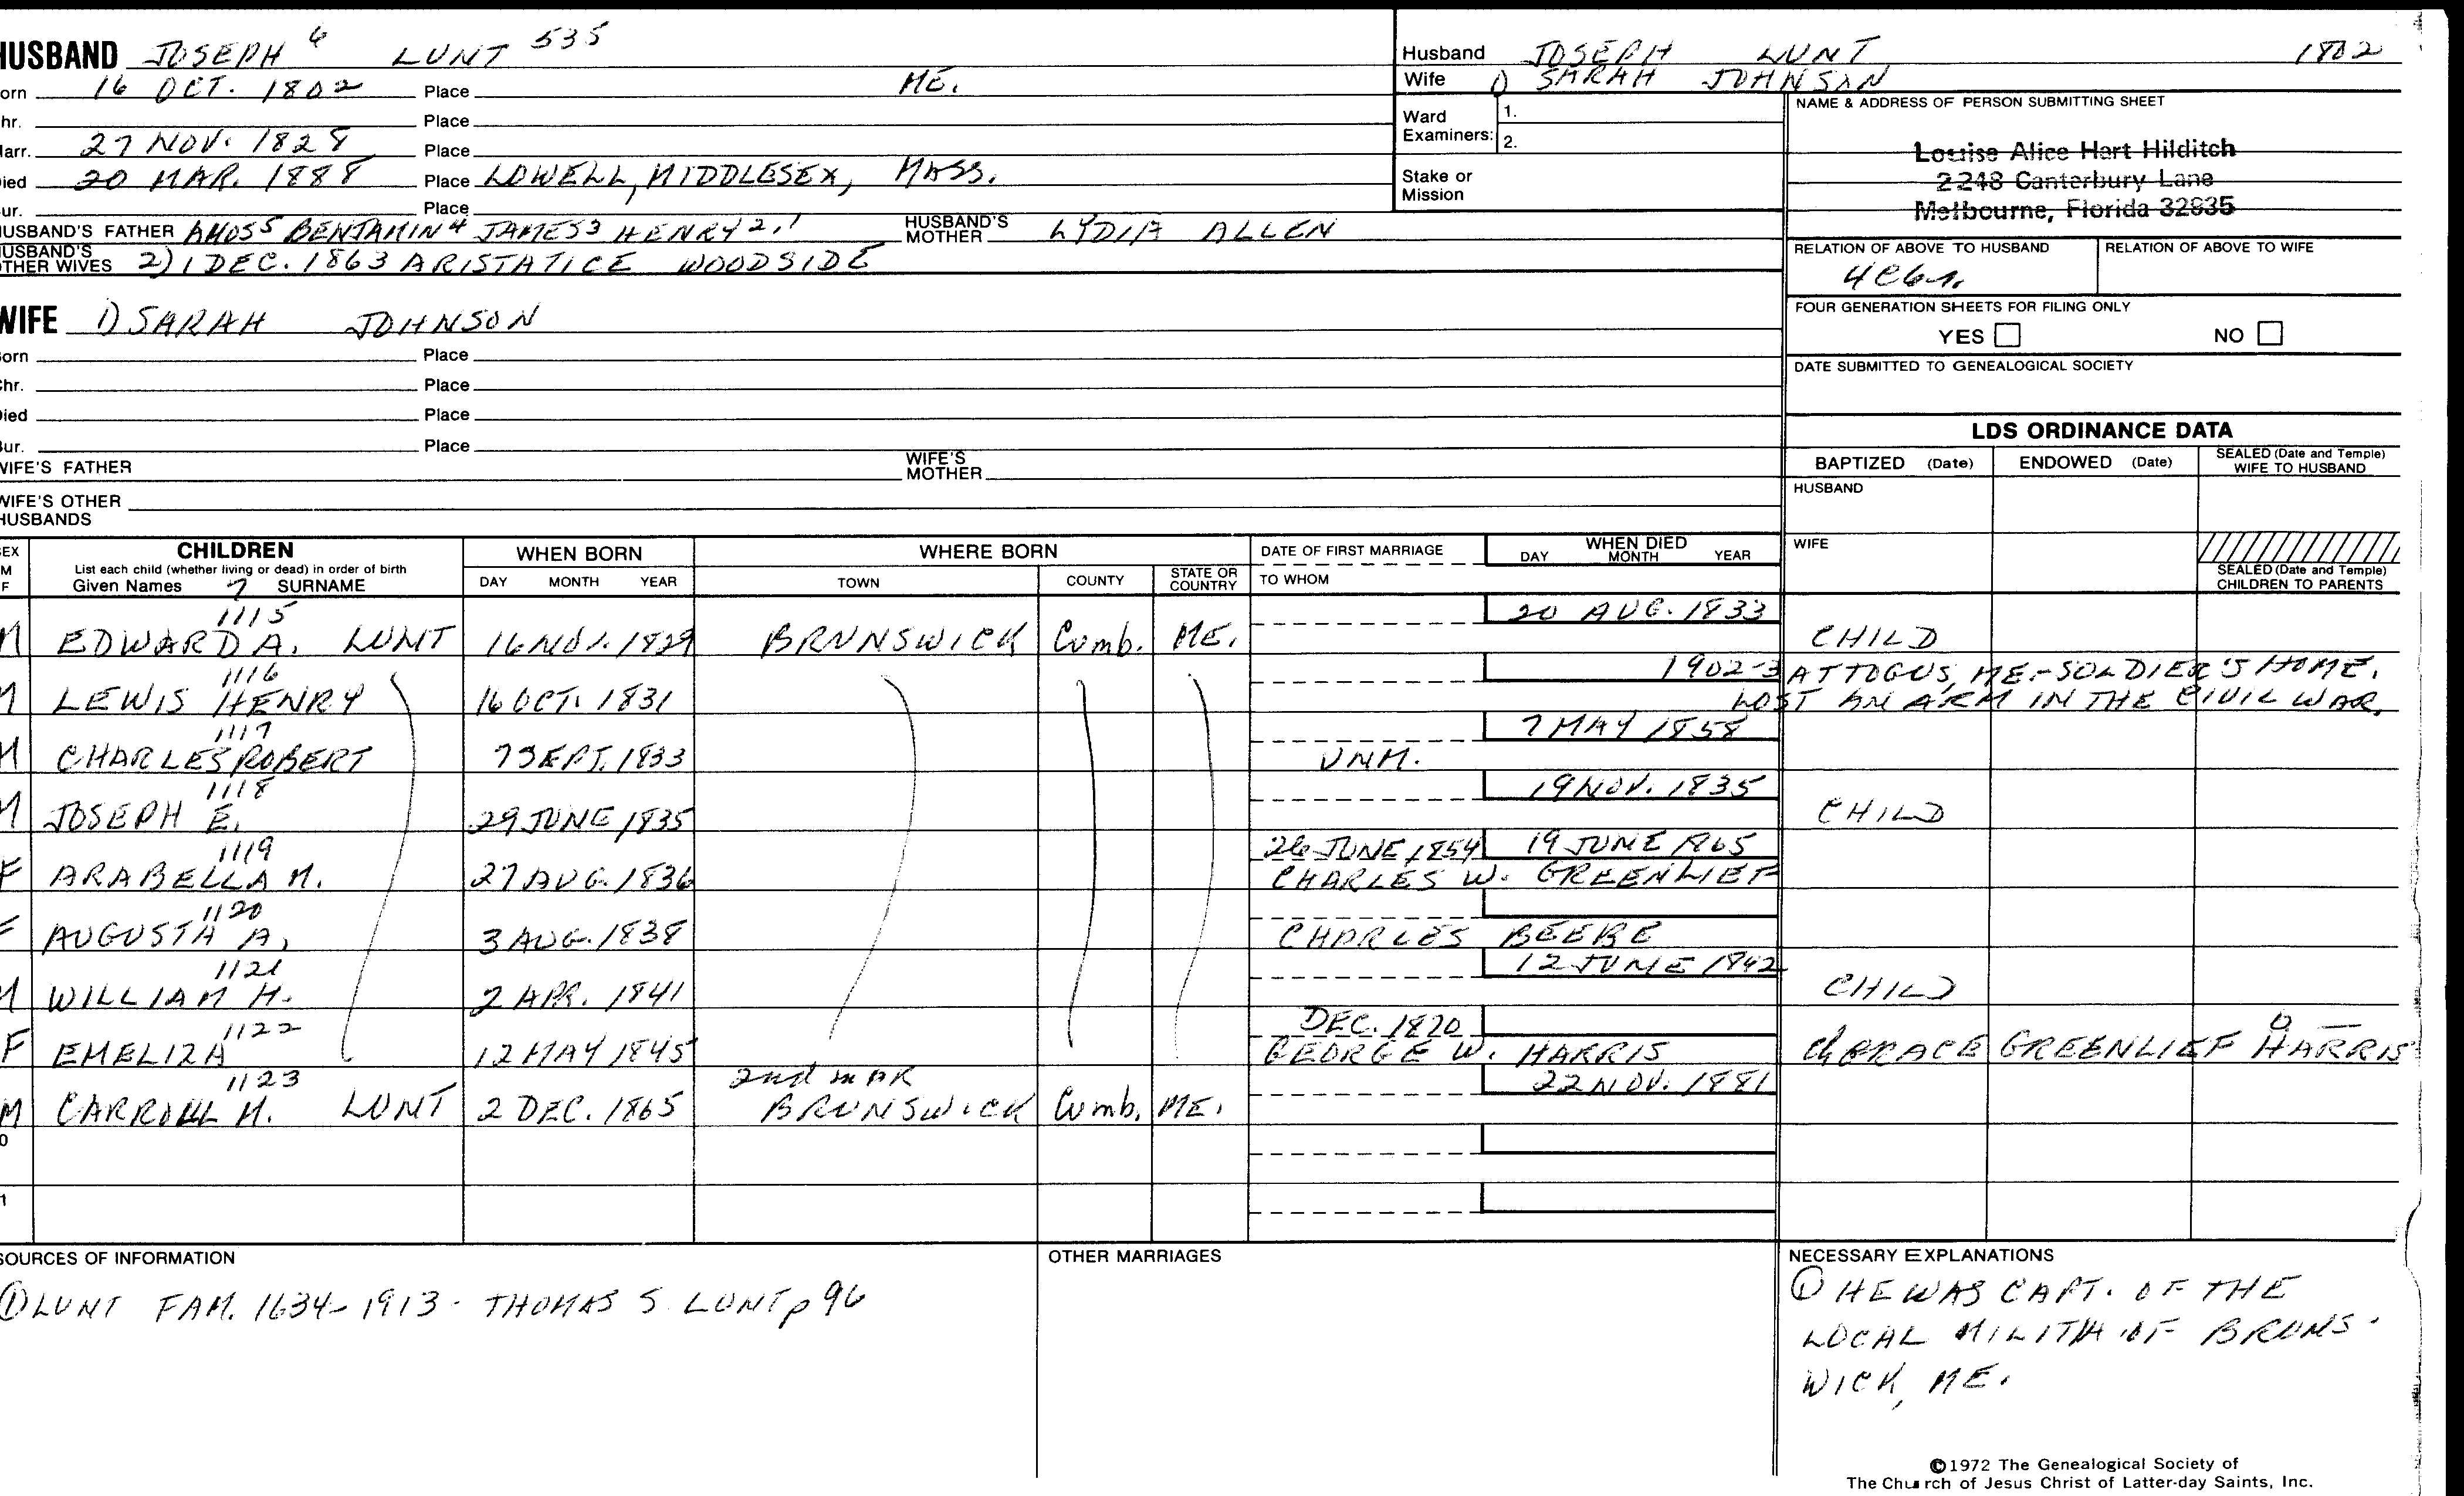 HUSBAND JOSEPH 6 LUNT 535
orn 16 OCT. 1802 Place ME.
hr. Place
arr. 27 NOV. 1828 Place
ied 20 MAR. 1888 Place LOWELL, MIDDLESEX, MASS.
ur. Place
HUSBAND'S FATHER AMOS5 BENJAMIN4 JAMES3 HENRY2,1 HUSBAND'S MOTHER LYDIA ALLEN
HUSBAND'S OTHER WIVES 2) 1 DEC. 1863 ARISTATICE WOODSIDE
WIFE 1) SARAH JOHNSON
orn Place
hr. Place
ied Place
ur. Place
WIFE'S FATHER WIFE'S MOTHER
WIFE'S OTHER HUSBANDS
Husband JOSEPH LUNT 1802
Wife 1) SARAH JOHNSON
Ward Examiners: 1.
2.
Stake or Mission
NAME & ADDRESS OF PERSON SUBMITTING SHEET
Louise Alice Hart Hilditch
2248 Canterbury Lane
Melbourne, Florida 32935
RELATION OF ABOVE TO HUSBAND RELATION OF ABOVE TO WIFE
4C6r.
FOUR GENERATION SHEETS FOR FILING ONLY
YES NO
DATE SUBMITTED TO GENEALOGICAL SOCIETY
LDS ORDINANCE DATA
BAPTIZED (Date) ENDOWED (Date) SEALED (Date and Temple) WIFE TO HUSBAND
HUSBAND
WIFE
SEALED (Date and Temple) CHILDREN TO PARENTS
SEX M F CHILDREN WHEN BORN WHERE BORN DATE OF FIRST MARRIAGE WHEN DIED
List each child (whether living or dead) in order of birth DAY MONTH YEAR TOWN COUNTY STATE OR COUNTRY TO WHOM DAY MONTH YEAR
Given Names 7 SURNAME
1115 20 AUG. 1833
M EDWARD A. LUNT 16 NOV. 1829 BRUNSWICK Cumb. ME. CHILD
1116 1902-3 ATTOGUS, ME.-SOLDIER'S HOME.
M LEWIS HENRY 16 OCT. 1831 LOST AN ARM IN THE CIVIL WAR.
1117 7 MAY 1858
M CHARLES ROBERT 7 SEPT. 1833 UNM.
1118 19 NOV. 1835
M JOSEPH E. 29 JUNE 1835 CHILD
1119 26 JUNE 1854 19 JUNE 1865
F ARABELLA M. 27 AUG. 1836 CHARLES W. GREENLIEF
1120
F AUGUSTA A. 3 AUG. 1838 CHARLES BEEBE
1121 12 JUNE 1842
M WILLIAM H. 2 APR. 1841 CHILD
1122 DEC. 1870
F EMELIZA 12 MAY 1845 GEORGE W. HARRIS GRACE GREENLIEF HARRIS
1123 2nd mar 22 NOV. 1881
M CARROLL H. LUNT 2 DEC. 1865 BRUNSWICK Cumb. ME.
0
1
SOURCES OF INFORMATION
① LUNT FAM. 1634-1913 - THOMAS S. LUNT p 96
OTHER MARRIAGES
NECESSARY EXPLANATIONS
① HE WAS CAPT. OF THE
LOCAL MILITIA OF BRUNS-
WICK, ME.
©1972 The Genealogical Society of
The Church of Jesus Christ of Latter-day Saints, Inc.